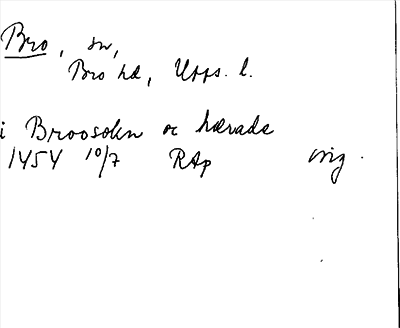 Bro, sn,
Bro hd, Upps. l.
i Broosokn oc hærade
1454 10/7 RAp orig.